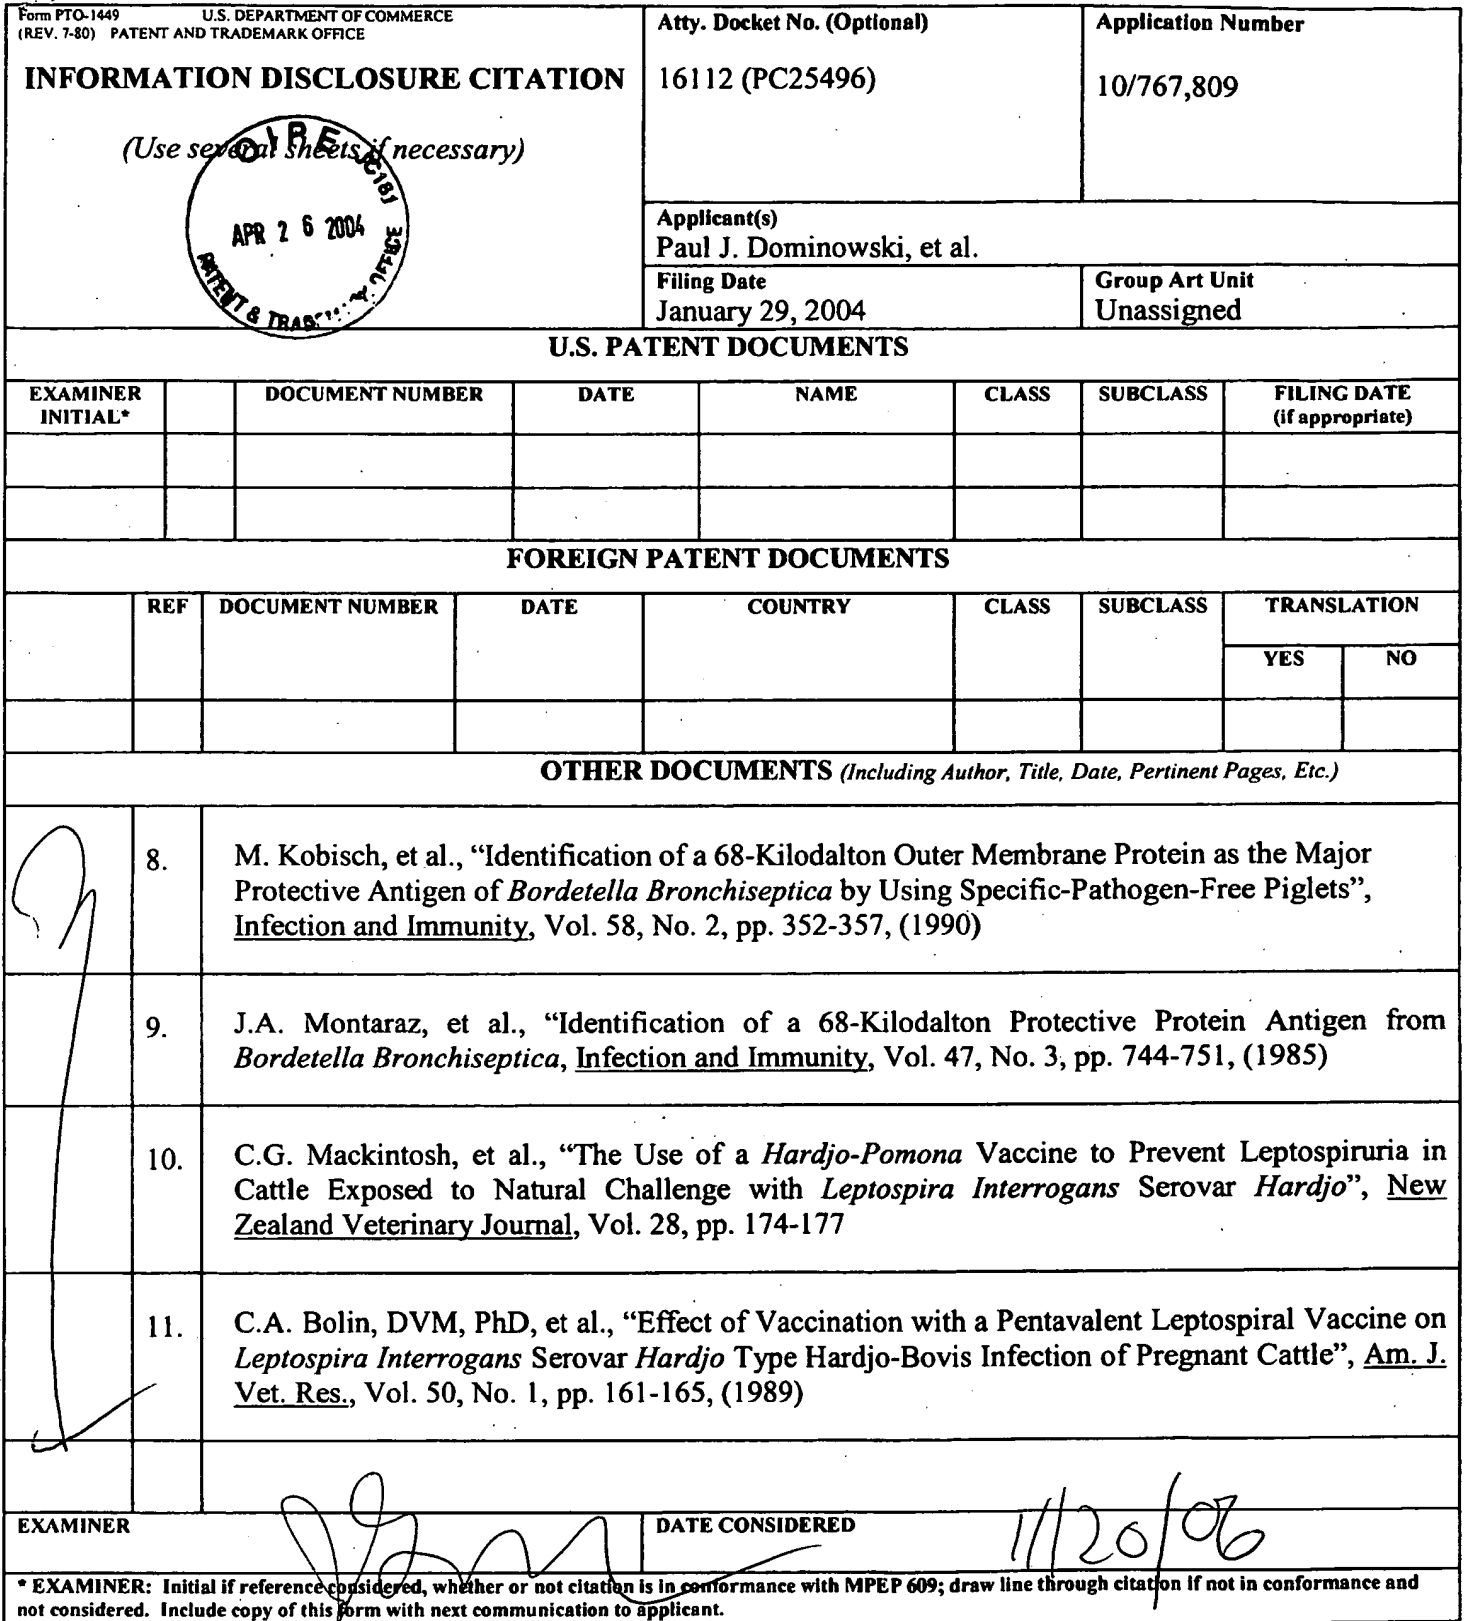 Form PTO-1449 U.S. DEPARTMENT OF COMMERCE
(REV. 7-80) PATENT AND TRADEMARK OFFICE
INFORMATION DISCLOSURE CITATION
(Use several sheets if necessary)
OIPE JC181
APR 26 2004
PATENT & TRADEMARK OFFICE
Atty. Docket No. (Optional)
16112 (PC25496)
Application Number
10/767,809
Applicant(s)
Paul J. Dominowski, et al.
Filing Date
January 29, 2004
Group Art Unit
Unassigned
U.S. PATENT DOCUMENTS
EXAMINER INITIAL* DOCUMENT NUMBER DATE NAME CLASS SUBCLASS FILING DATE (if appropriate)
FOREIGN PATENT DOCUMENTS
REF DOCUMENT NUMBER DATE COUNTRY CLASS SUBCLASS TRANSLATION
YES NO
OTHER DOCUMENTS (Including Author, Title, Date, Pertinent Pages, Etc.)
8. M. Kobisch, et al., “Identification of a 68-Kilodalton Outer Membrane Protein as the Major
Protective Antigen of Bordetella Bronchiseptica by Using Specific-Pathogen-Free Piglets”,
Infection and Immunity, Vol. 58, No. 2, pp. 352-357, (1990)
9. J.A. Montaraz, et al., “Identification of a 68-Kilodalton Protective Protein Antigen from
Bordetella Bronchiseptica, Infection and Immunity, Vol. 47, No. 3, pp. 744-751, (1985)
10. C.G. Mackintosh, et al., “The Use of a Hardjo-Pomona Vaccine to Prevent Leptospiruria in
Cattle Exposed to Natural Challenge with Leptospira Interrogans Serovar Hardjo”, New
Zealand Veterinary Journal, Vol. 28, pp. 174-177
11. C.A. Bolin, DVM, PhD, et al., “Effect of Vaccination with a Pentavalent Leptospiral Vaccine on
Leptospira Interrogans Serovar Hardjo Type Hardjo-Bovis Infection of Pregnant Cattle”, Am. J.
Vet. Res., Vol. 50, No. 1, pp. 161-165, (1989)
EXAMINER
DATE CONSIDERED 11/20/06
* EXAMINER: Initial if reference considered, whether or not citation is in conformance with MPEP 609; draw line through citation if not in conformance and
not considered. Include copy of this form with next communication to applicant.